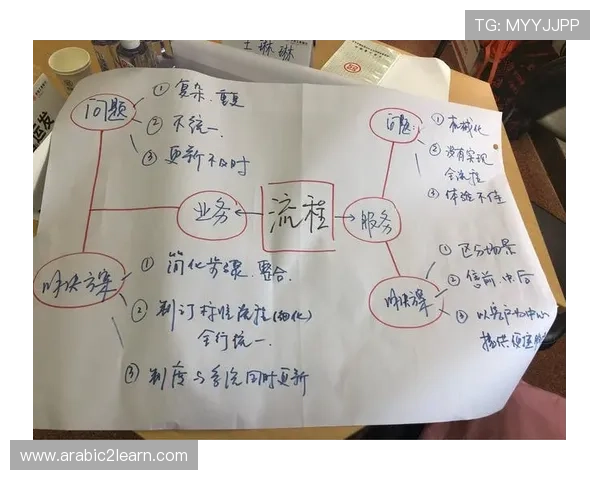 TG: MYYJJPP
王琳琳
问题
① 复杂、重复
② 不统一
③ 更新不及时
问题:
① 机械化
② 没有实现
全流程
③ 体验不佳
业务
流程
服务
解决方案
① 简化步骤、整合
② 制订标准流程(细化)
全行统一
③ 制度与系统同时更新
解决方案
① 区分场景
② 售前、中、后
③ 以客户为中心
提供便捷服
www.arabic2learn.com